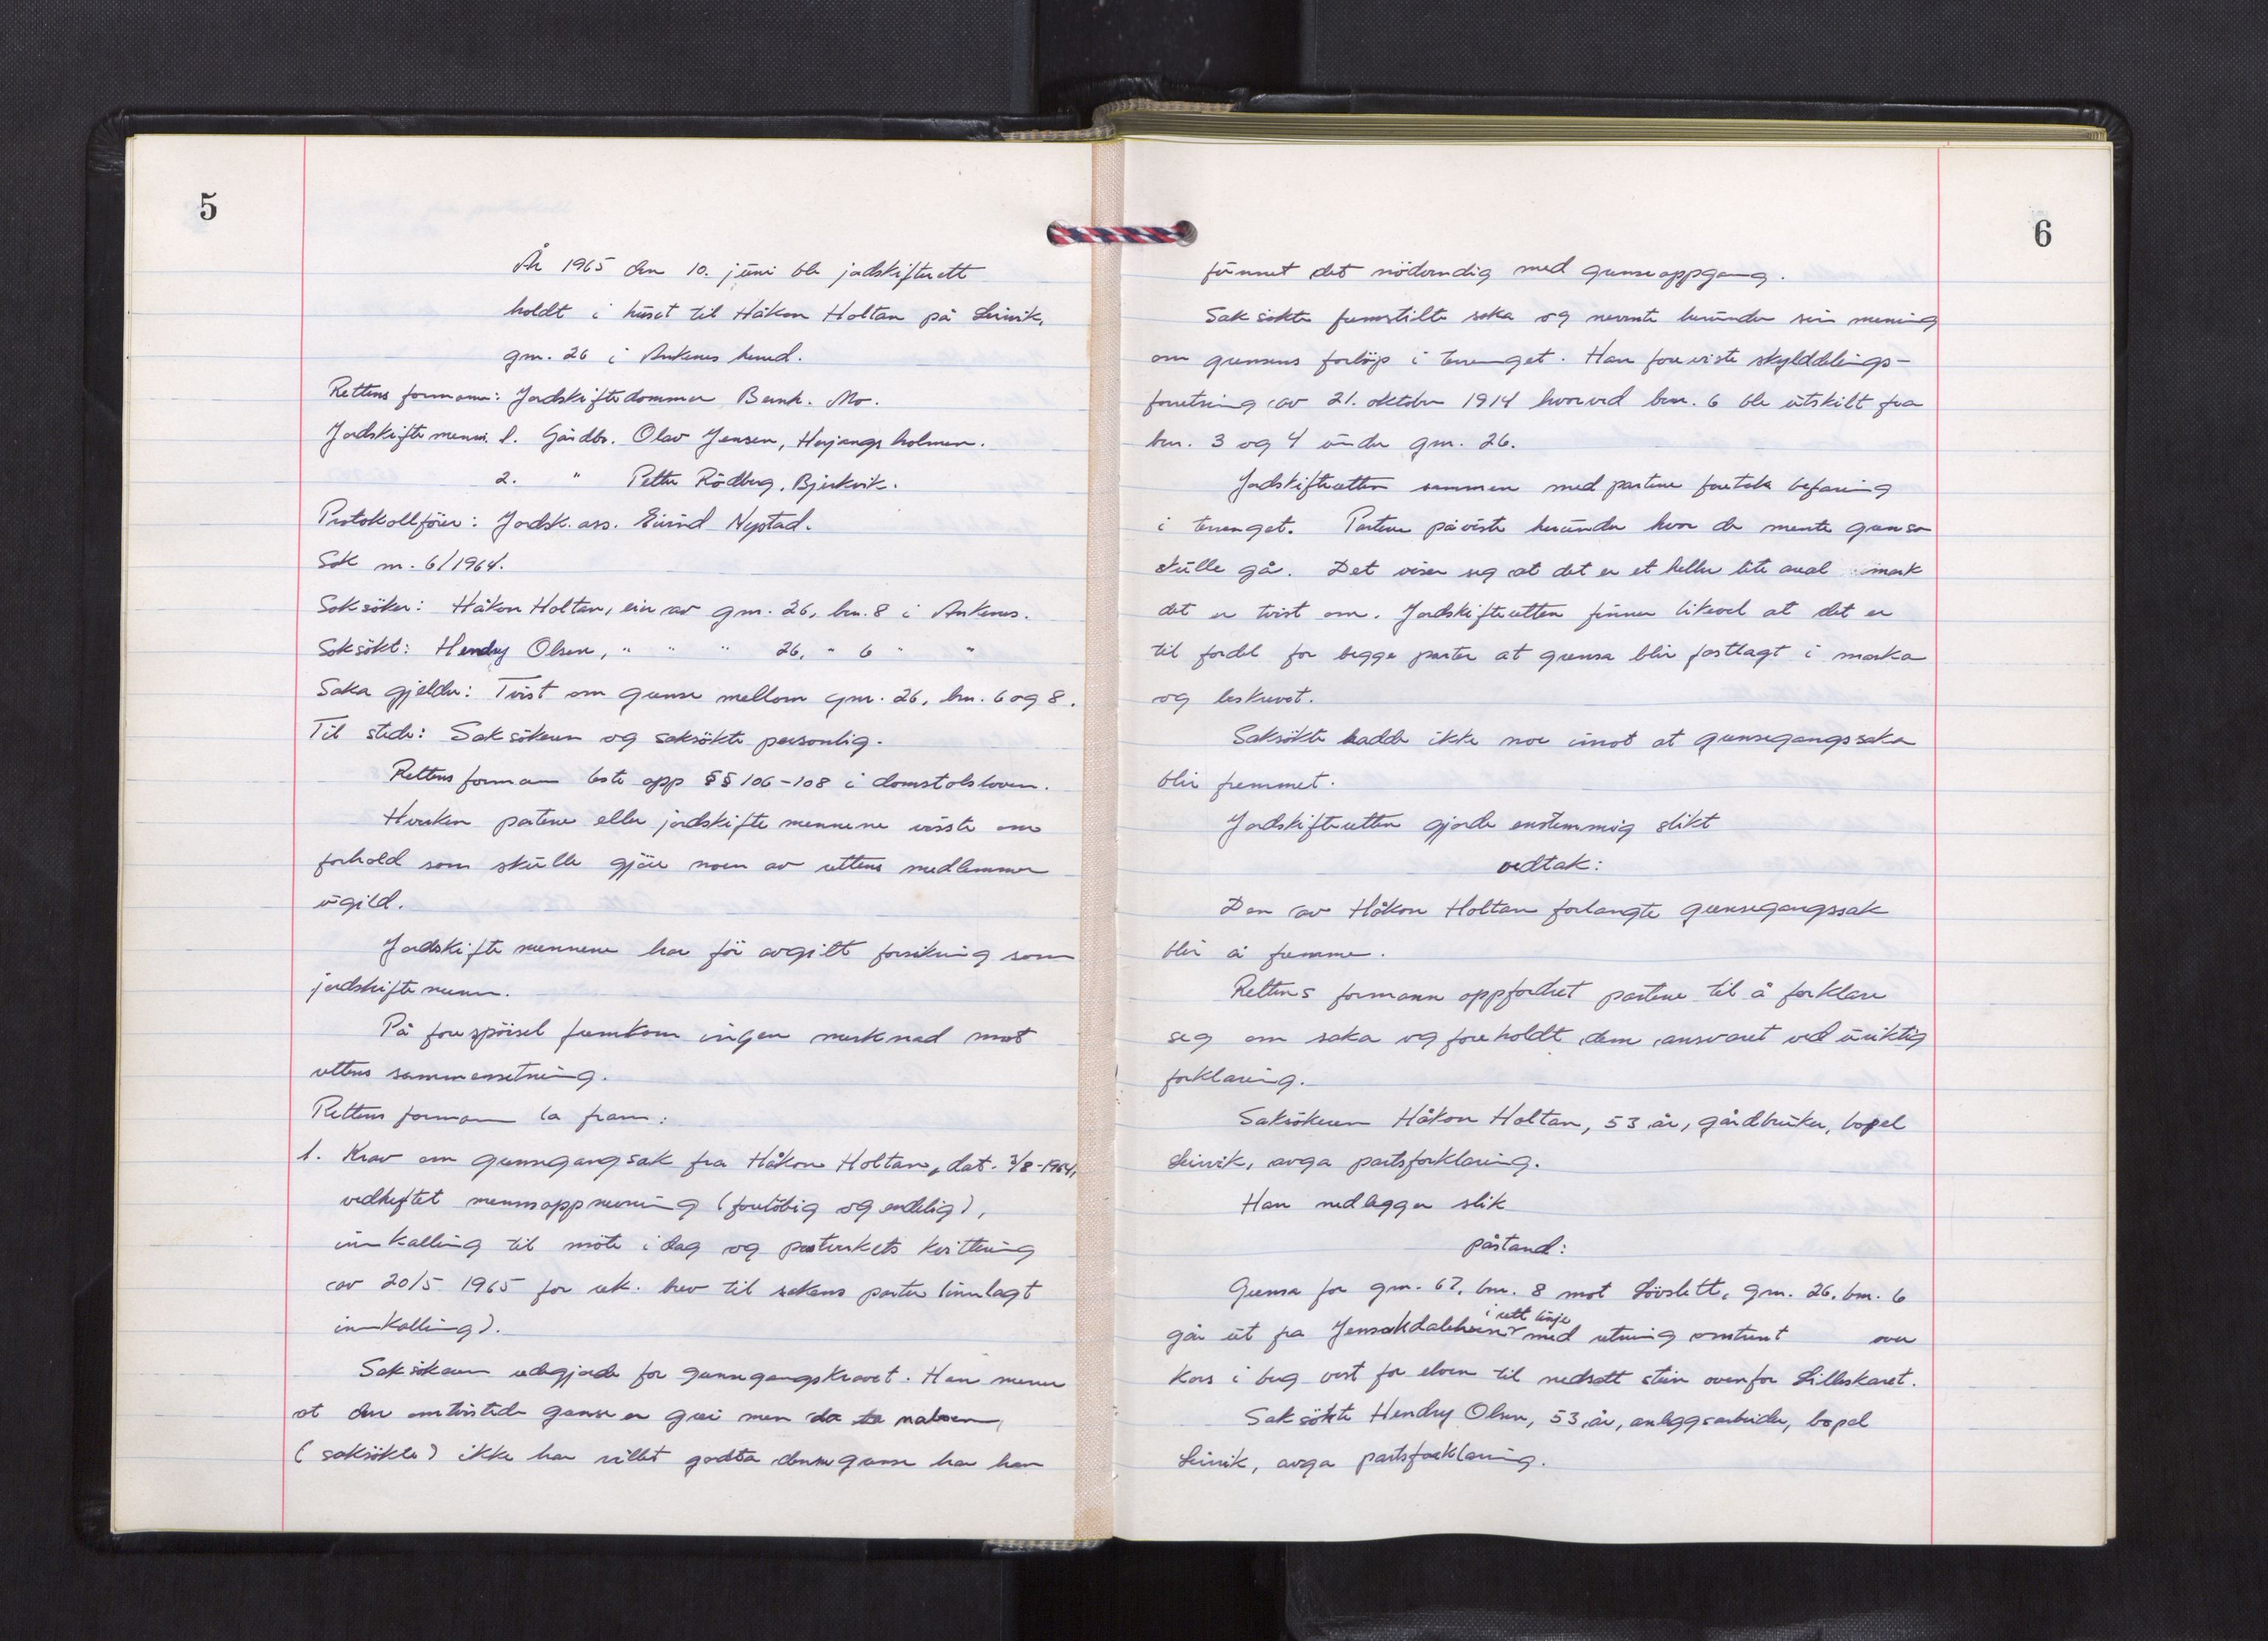 5
År 1965 den 10. juni ble jordskifterett
holdt i huset til Håkon Holtan på Leirvik,
gnr. 26 i Ankenes herred.
Rettens formann: Jordskiftedommer Bernh. Mo.
Jordskiftemenn: 1. Gårdbr. Olav Jensen, Herjangsholmen.
2. " Petter Rödberg, Bjerkvik.
Protokollförer: Jordsk. ass. Eivind Nystad.
Sak nr. 6/1964.
Saksöker: Håkon Holtan, eier av gnr. 26, bnr. 8 i Ankenes.
Saksökt: Hendry Olsen, " " " 26, " 6 " "
Saka gjelder: Tvist om grense mellom gnr. 26, bnr. 6 og 8.
Til stede: Saksökeren og saksökte personlig.
Rettens formann leste opp §§ 106-108 i domstolsloven.
Hverken partene eller jordskiftemennene visste om
forhold som skulle gjöre noen av rettens medlemmer
ugild.
Jordskiftemennene har för avgitt forsikring som
jordskiftemenn.
På forespörsel fremkom ingen merknad mot
rettens sammensetning.
Rettens formann la fram:
1. Krav om grensegangsak fra Håkon Holtan, dat. 3/8-1964,
vedheftet mennsoppnevning (forelöbig og endelig),
innkalling til möte i dag og postverkets kvittering
av 20/5 1965 for rek. brev til sakens parter (innlagt
innkalling).
Saksökeren redegjorde for grensegangskravet. Han mener
at den omtvistede grense er grei men da naboen,
(saksökte) ikke har villet godta denne grense har han
6
funnet det nödvendig med grenseoppgang.
Saksökte fremstilte saka og nevnte herunder sin mening
om grensens forlöp i terrenget. Han foreviste skylddelings-
forretning av 21. oktober 1914 hvorved bnr. 6 ble utskilt fra
bnr. 3 og 4 under gnr. 26.
Jordskifteretten sammen med partene foretok befaring
i terrenget. Partene påviste herunder hvor de mente grensa
skulle gå. Det viser seg at det er et heller lite areal mark
det er tvist om. Jordskifteretten finner likevel at det er
til fordel for begge parter at grensa blir fastlagt i marka
og beskrevet.
Saksökte hadde ikke noe imot at grensegangssaka
blir fremmet.
Jordskifteretten gjorde enstemmig slikt
vedtak:
Den av Håkon Holtan forlangte grensegangssak
blir å fremme.
Rettens formann oppfordret partene til å forklare
seg om saka og foreholdt dem ansvaret ved uriktig
forklaring.
Saksökeren Håkon Holtan, 53 år, gårdbruker, bopel
Leirvik, avga partsforklaring.
Han nedlegger slik
påstand:
Grensa for gnr. 67, bnr. 8 mot Lövslett, gnr. 26, bnr. 6
i rett linje
går ut fra med retning omtrent over
kors i berg vest for elven til nedsatt stein ovenfor Lilleskaret.
Saksökte Hendry Olsen, 53 år, anleggsarbeider, bopel
Leirvik, avga partsforklaring.